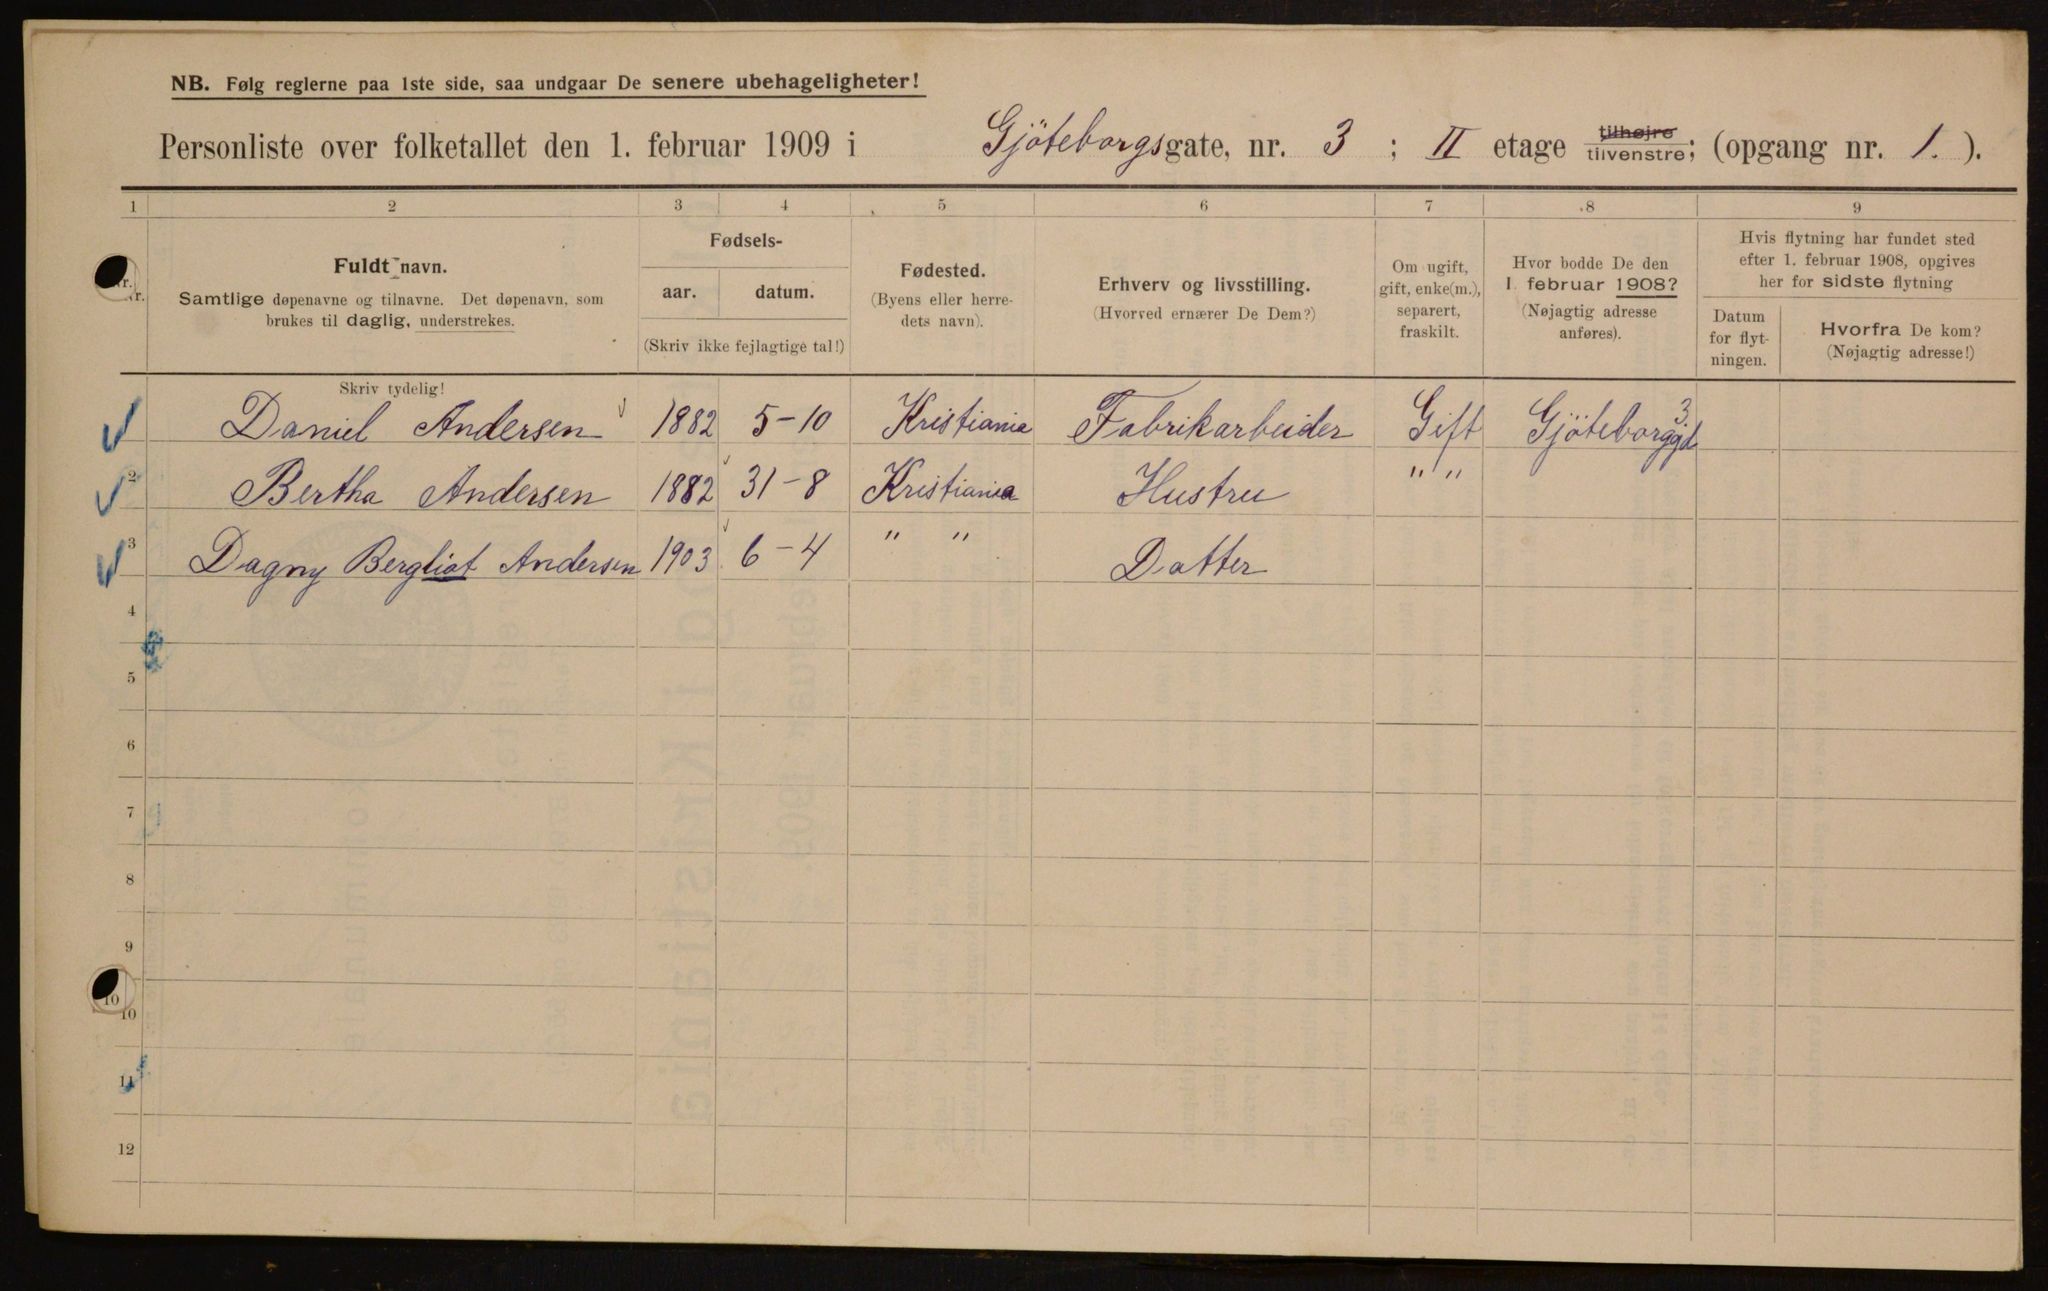 NB. Følg reglerne paa 1ste side, saa undgaar De senere ubehageligheter!
Personliste over folketallet den 1. februar 1909 i Gjöteborgsgate, nr. 3 ; II etage tilhøjre tilvenstre; (opgang nr. 1. ).
1 2 3 4 5 6 7 8 9
Fuldt navn.
Samtlige døpenavne og tilnavne. Det døpenavn, som
brukes til daglig, understrekes.
Fødsels-
aar. datum.
(Skriv ikke fejlagtige tal!)
Fødested.
(Byens eller herre-
dets navn).
Erhverv og livsstilling.
(Hvorved ernærer De Dem?)
Om ugift,
gift, enke(m.),
separert,
fraskilt.
Hvor bodde De den
1. februar 1908?
(Nøjagtig adresse
anføres).
Hvis flytning har fundet sted
efter 1. februar 1908, opgives
her for sidste flytning
Datum
for flyt-
ningen.
Hvorfra De kom?
(Nøjagtig adresse!)
Skriv tydelig!
Daniel Andersen 1882 5-10 Kristiania Fabrikarbeider Gift Gjöteborggd 3.
2 Bertha Andersen 1882 31-8 Kristiania Hustru " "
3 Dagny Bergliot Andersen 1903 6-4 " " Datter
4
5
6
7
8
9
10
10
11
12